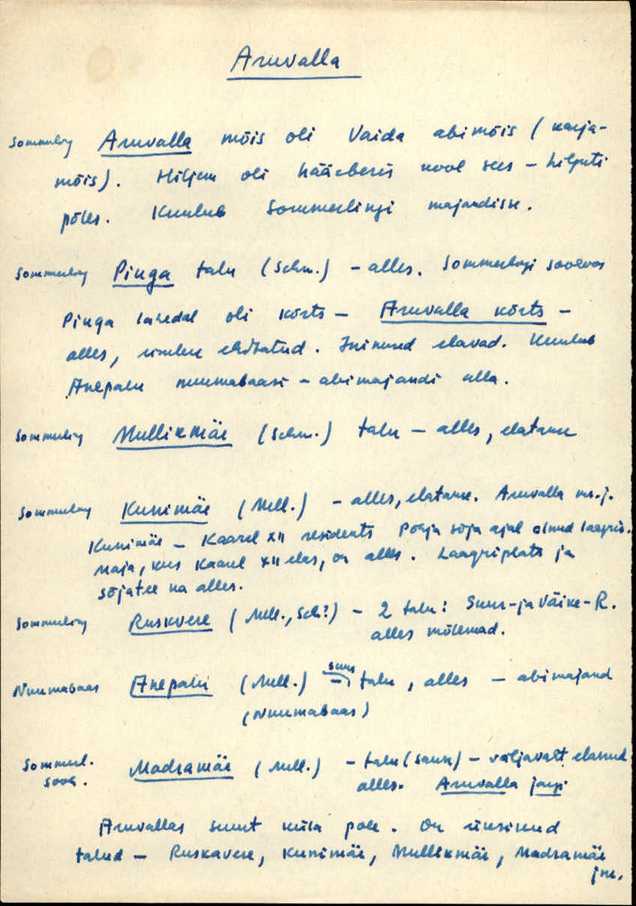 Aruvalla
Sommerling Aruvalla mõis oli Vaida abimõis (karja-
mõis). Hiljem oli häärberis kool sees - hiljuti
põles. Kuulub Sommerlingi majandisse.
Sommerling Piuga talu (Schm.) - alles. Sommerlingi
Piuga lähedal oli kõrts - Aruvalla kõrts -
alles, ümber ehitatud. Inimesed elavad. Kuulub
Anepalu nuumabaasi - abimajandi alla.
Sommerling Mullikmäe (Schm.) talu - alles, elatakse
Sommerling Kunimäe (Mell.) - alles, elatakse. Aruvalla m.j.
Kunimäe - Kaarel XII residents Põhja sõja ajal olnud laagris.
Maja, kus Kaarel XII elas, on alles. Laagriplats ja
sõjatee ka alles.
Sommerling Ruskvere (Mell., Sch!) - 2 talu: Suur- ja Väike-R.
alles mõlemad.
Nuumabaas Anepalu (Mell.) - suur talu, alles - abimajand
(Nuumabaas)
Sommerl.
sovh. Madramäe (Mell.) - talu (saun) - väljavalt elanud
alles. Aruvalla järgi
Aruvallas suurt küla pole. On üksikud
talud - Ruskavere, Kunimäe, Mullikmäe, Madramäe
jne.